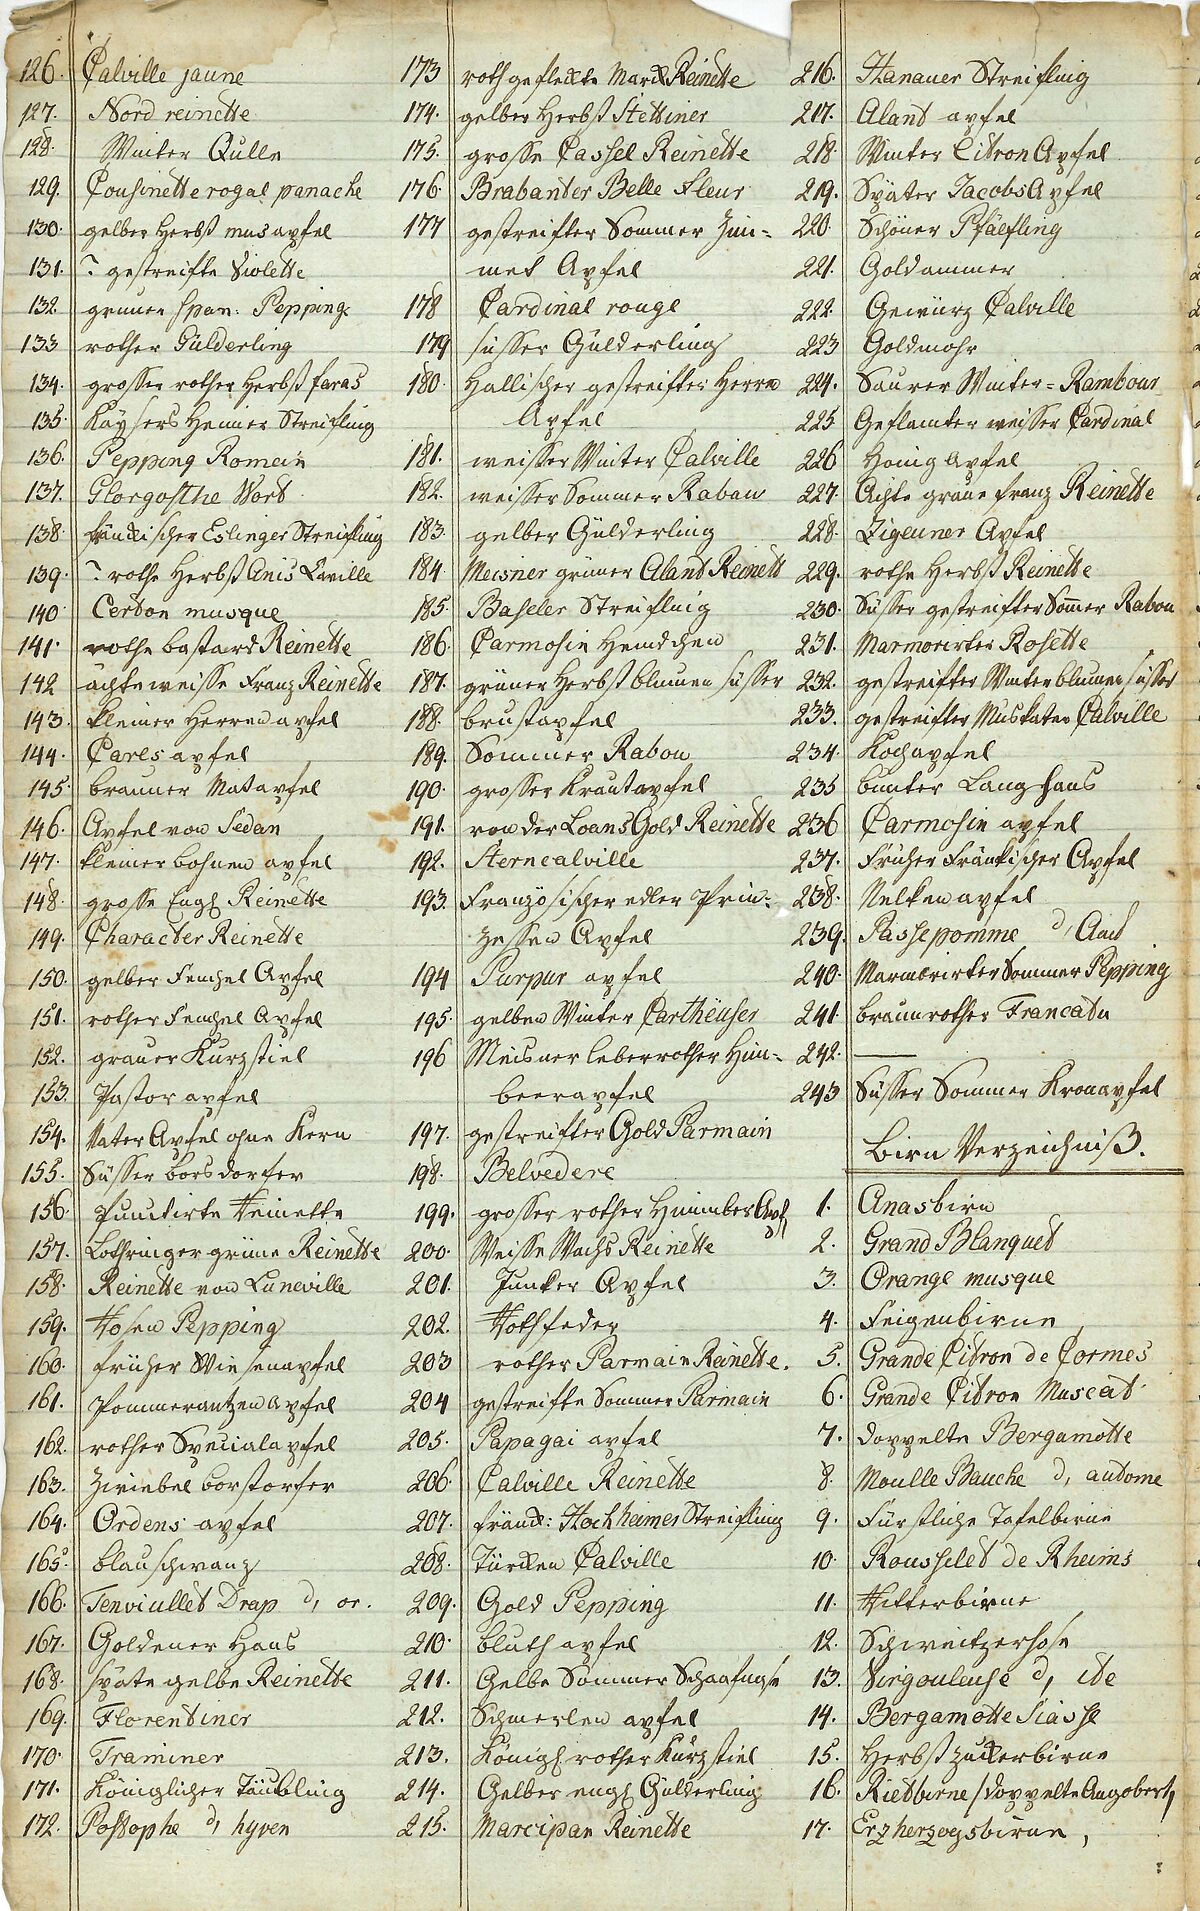 126. Calville jaune
127. Nord reinette
128. Winter Qulle
129. Cousinette rogal panache
130. gelber Herbst mus apfel
131. ? gestreifte Violette
132. grauer span: Pepping
133 rother Gülderling
134. grosser rother Herbst faras
135. Kaysers Heimer Streifling
136. Pepping Romein
137. Glorgosthe Wort
138. fränkischer Eslinger Streifling
139. ? rothe Herbst Anis Caville
140. Certon musque
141. rothe bastard Reinette
142 ächte weisse Franz Reinette
143. kleiner Herren apfel
144. Carls apfel
145. brauner Mat apfel
146. Apfel von Sedan
147. kleiner bohnen apfel
148. grosse Engl Reinette
149. Character Reinette
150. gelber Fenchel Apfel
151. rother Fenchel Apfel
152. grauer Kurzstiel
153. Pastor apfel
154. Vater Apfel ohne Kern
155. Süsser borsdorfer
156. punctirte Reinette
157. Lothringer grüne Reinette
158. Reinette von Luneville
159. Rosen Pepping
160. früher Wiesenapfel
161. Pommerantzen apfel
162. rother Specialapfel
163. Zwiebel borstorfer
164. Ordens apfel
165. blau schwanz
166. Fenviullet Drap d, or.
167. Goldener Hans
168. späte gelbe Reinette
169. Florentiner
170. Traminer
171. Königlicher Täubling
172. Postophe d, hyven
173 roth gefleckte Marck Reinette
174. gelber Herbst Stettiner
175. grosse Cassel Reinette
176. Brabanter Belle fleur
177 gestreifter Sommer Zim=
met Apfel
178 Cardinal rouge
179 süsser Gülderling
180. Hallischer gestreifter Herrn
Apfel
181. weisser Winter Calville
182. weisser Sommer Rabau
183. gelber Gülderling
184 Meisner grüner Alant Reinett
185. Baseler Streifling
186. Carmosin Hemdchen
187. grüner Herbst blumen süsser
188. brustapfel
189. Sommer Rabou
190. grosser Krautapfel
191. von der Loans Gold Reinette
192. Sterncalville
193. Französischer edler Prin=
zessen Apfel
194 Purpur apfel
195. gelber Winter Cartheuser
196 Meisner leberrother Him=
beerapfel
197. gestreifter Gold Parmain
198. Belvedere
199. grosser rother Himmber Apf
200. Weisse Wachs Reinette
201. Junker Apfel
202. Rothfeder
203 rother Parmain Reinette.
204 gestreifte Sommer Parmain
205. Papagai apfel
206. Calville Reinette
207. fränck: Hochheimer Streifling
208. Türcken Calville
209. Gold Pepping
210. bluth apfel
211. Gelbe Sommer Schaafnase
212. Schmerlen apfel
213. Königl rother Kürzstiel
214. Gelber engl Gülderling
215. Marcipan Reinette
216. Hanauer Streifling
217. Alant apfel
218 Winter Citron Apfel
219. Später Jacobs Apfel
220. Schöner Pfäefling
221. Goldammer
222. Gewürz Calville
223 Goldmohr
224. Saurer Winter=Rambour
225 Geflamter weisser Cardinal
226 Honig Apfel
227. Achte graue franz Reinette
228. Zigeuner Apfel
229. rothe Herbst Reinette
230. Süsser gestreifter Somer Rabou
231. Marmorirter Rosette
232. gestreifter Winterblumen süsser
233. gestreifter Muskaten Calville
234. Kochapfel
235 bunter Langhans
236 Carmosin apfel
237. Früher Fränkischer Apfel
238. Nelken apfel
239. Passe pomme d, Aut
240. Marmorirter Sommer Pepping
241. braunrother Francatu
242. ——
243 Süsser Sommer Kronapfel
Birn Verzeichniß.
1. Anasbirn
2. Grand Blanquet
3. Orange musque
4. Feigenbirne
5. Grande Citron de Cormes
6. Grande Citron Muscat
7. doppelte Bergamotte
8. Moulle Bauche d, autome
9. Fürstliche Tafelbirne
10. Rousselet de Rheims
11. Ritterbirne
12. Schweitzerhose
13. Virgouleuse d, ete
14. Bergamotte Siasse
15. Herbst zuckerbirne
16. Rietbirne /doppelte Angobert/
17. Erzherzogsbirne,